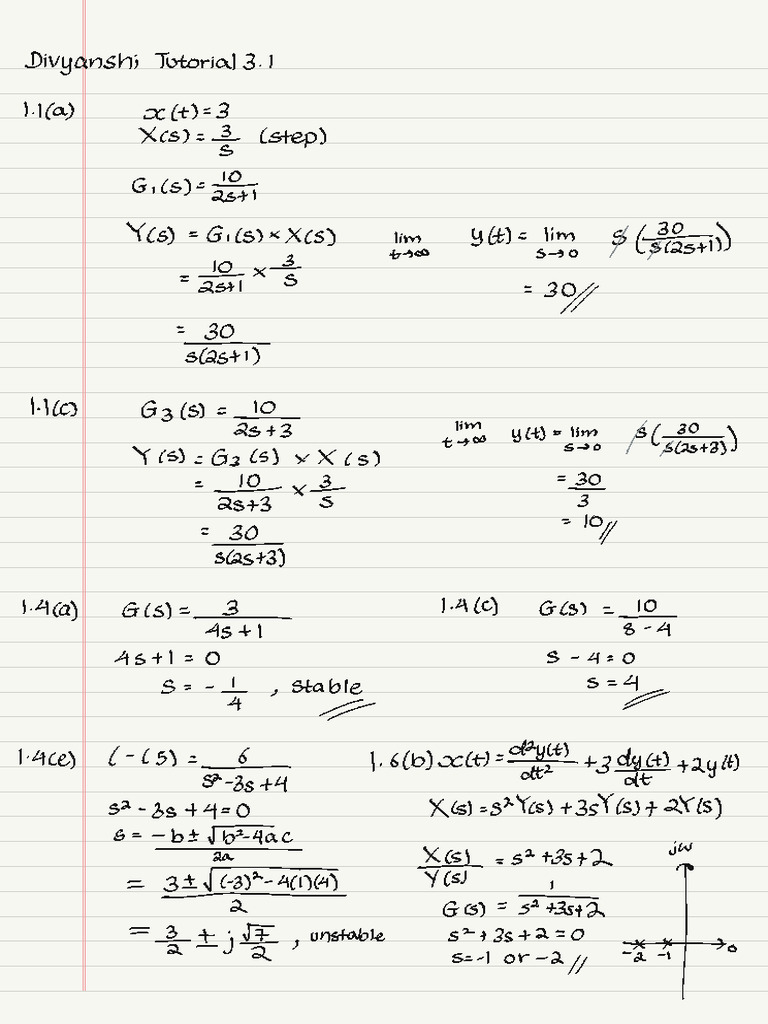 Divyanshi Tutorial 3.1
1.1(a) x(t) = 3
X(s) = 3/s (step)
G₁(s) = 10/(2s+1)
Y(s) = G₁(s) × X(s)
= 10/(2s+1) × 3/s
= 30/(s(2s+1))
lim t→∞ y(t) = lim s→0 s(30/(s(2s+1)))
= 30//
1.1(c) G₃(s) = 10/(2s+3)
Y(s) = G₃(s) × X(s)
= 10/(2s+3) × 3/s
= 30/(s(2s+3))
lim t→∞ y(t) = lim s→0 s(30/(s(2s+3)))
= 30/3
= 10//
1.4(a) G(s) = 3/(4s+1)
4s+1 = 0
s = -1/4 , stable
1.4(c) G(s) = 10/(8-4)
s - 4 = 0
s = 4
1.4(e) (-(5) = 6/(s²-3s+4)
s² - 3s + 4 = 0
s = (-b ± √(b²-4ac))/2a
= (3 ± √((-3)² - 4(1)(4)))/2
= 3/2 ± j √7/2 , unstable
1.6(b) x(t) = d²y(t)/dt² + 3 dy(t)/dt + 2y(t)
X(s) = s²Y(s) + 3sY(s) + 2Y(s)
X(s)/Y(s) = s² + 3s + 2
G(s) = 1/(s²+3s+2)
s² + 3s + 2 = 0
s = -1 or -2 //
jω
-2 -1 σ